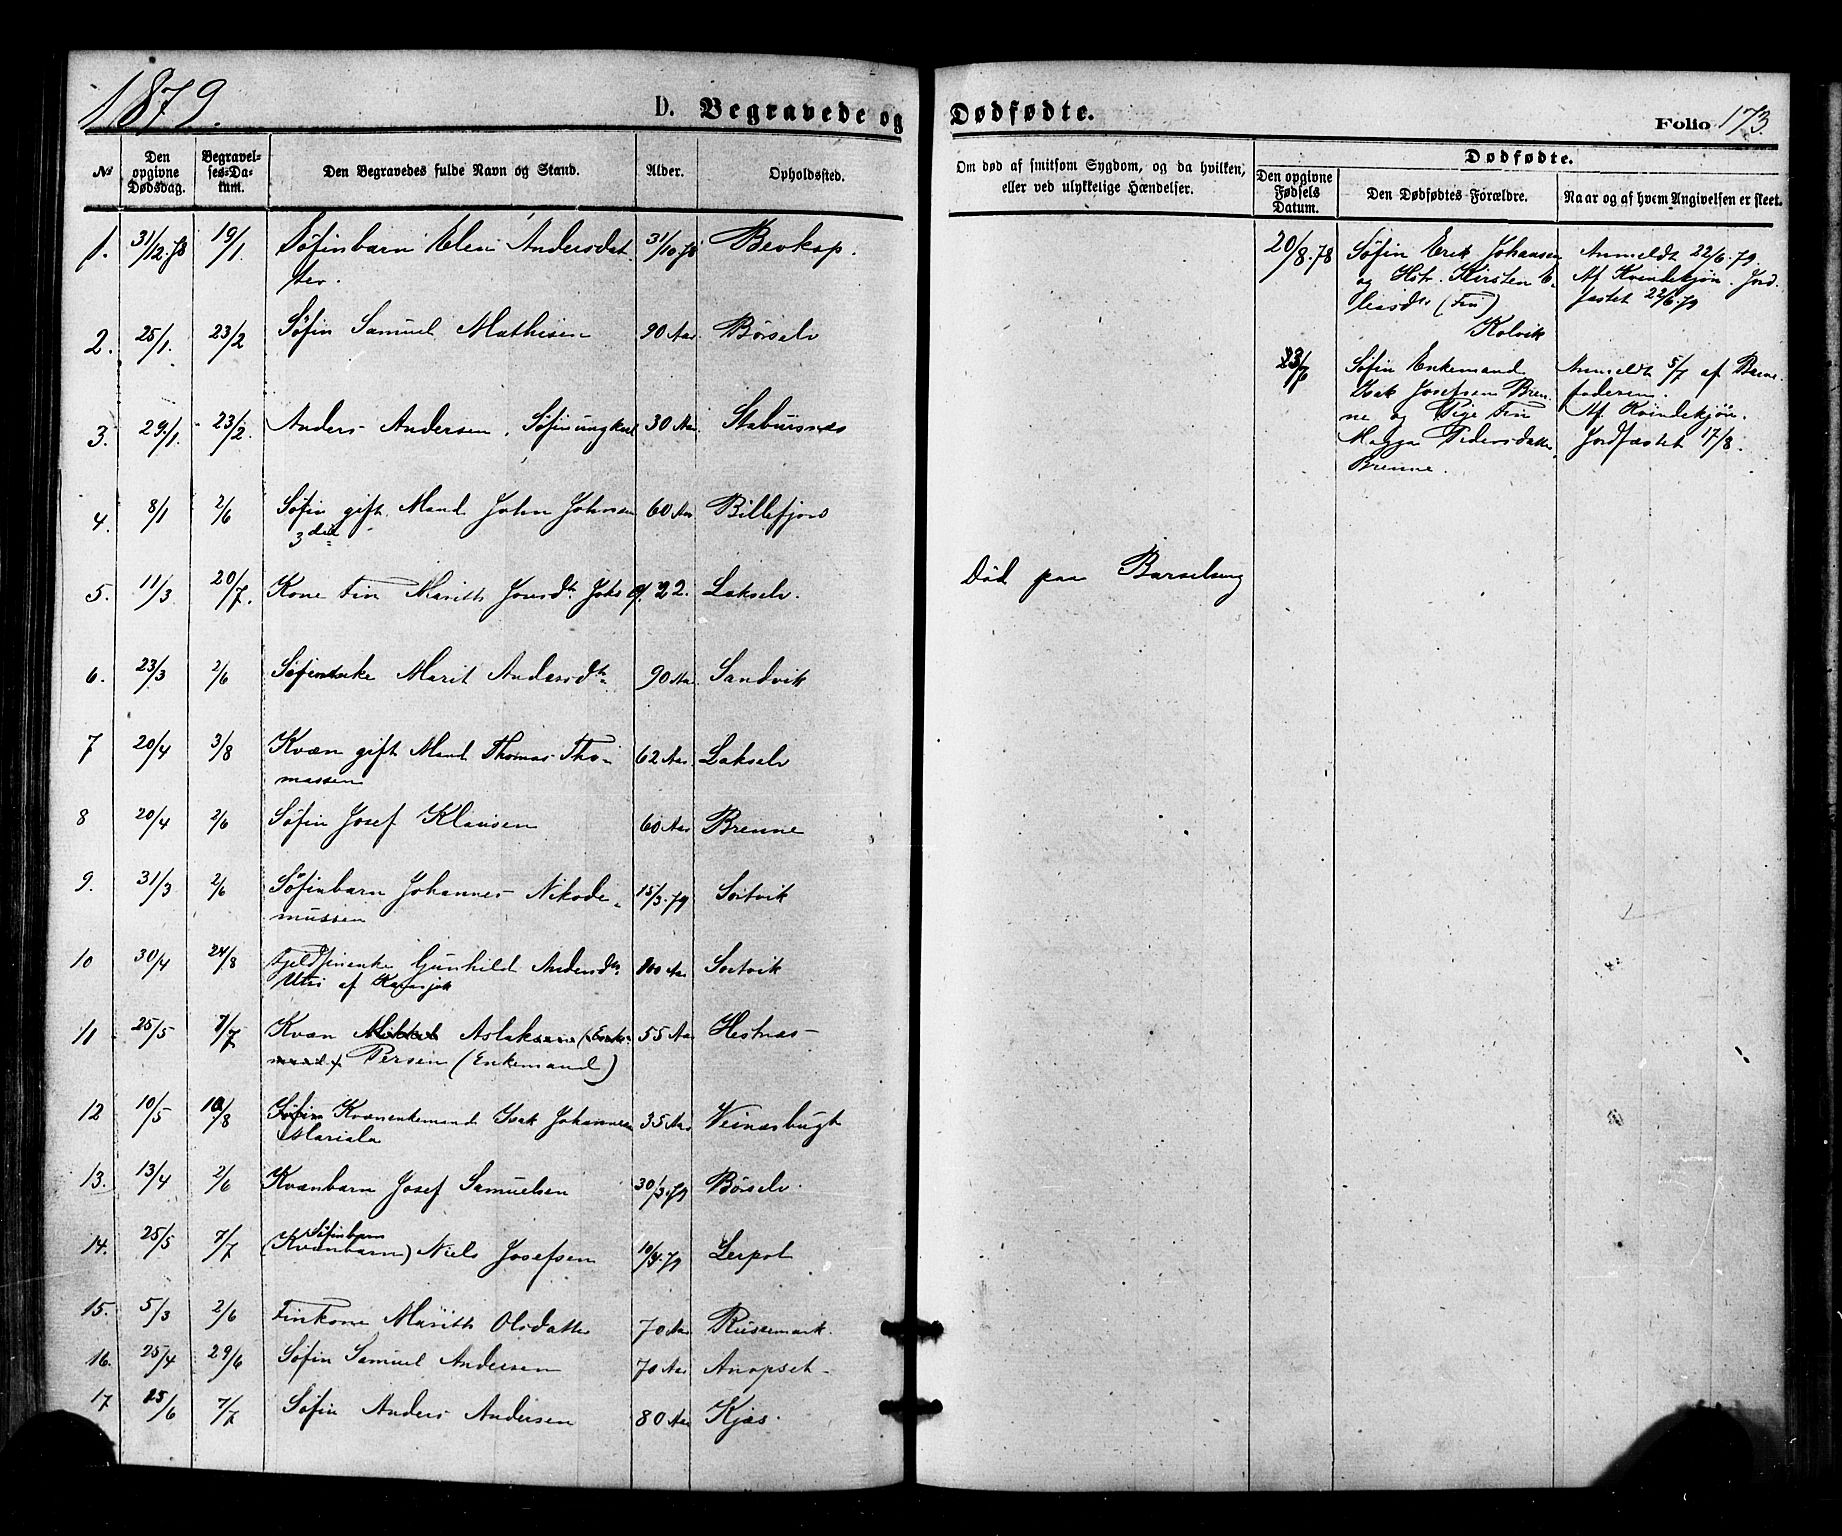 1879.
D. Begravede og
№ Den opgivne Dødsdag. Begravelses-Datum. Den Begravedes fulde Navn og Stand. Alder. Opholdssted.
1. 31/12.78 19/1 Søfinbarn Elen Andersdat- 31/10 78 Bevkop.
ter.
2. 25/1. 23/2 Søfin Samuel Mathisen 90 Aar Børselv
3. 29/1. 23/2. Anders Andersen, Søfinungkarl 30 Aar. Stabursnæs
4. 8/1 2/6 Søfin gift Mand John Johnsen 60 Aar Billefjord
3die
5. 11/3 20/7. Kone Fin Marith Jonsdtr 22. Lakselv.
6. 23/3 2/6 Søfinenke Marit Andersdtr 90 Aar. Sandvik
7 20/4 3/8 Kvæn gift Mand Thomas Tho- 62 Aar Lakselv
massen
8 20/4 2/6 Søfin Josef Klausen 60 Aar Brenne
9. 31/3 2/6 Søfinbarn Johannes Nikode- 15/3.79 Sortvik
mussen
10 30/4 24/8 Fjeldfinenke Gunhild Andersdtr 100 Aar Sortvik
Utsi af Karasjok
11 25/5 7/7 Kvæn Mikkel Aslaksen (Enke- 55 Aar Hestnæs
mand) Persen (Enkemand)
12 10/5 10/8 Søfin Kvænenkemand Isak Johannesen 35 Aar Veinæsbugt
Mariala
13. 13/4 2/6 Kvænbarn Josef Samuelsen 30/3.79 Børselv.
Søfinbarn
14. 25/5 7/7 (Kvænbarn) Niels Josefsen 10/4.79 Lerpol
15. 5/3 2/6 Finkone Marith Olsdatter 70 Aar Russemark.
16. 25/4 29/6 Søfin Samuel Andersen 70 Aar Anopset
17 25/6 7/7 Søfin Anders Andersen 80 Aar Kjæs.
Dødfødte.
Folio 173
Om død af smitsom Sygdom, og da hvilken, eller ved ulykkelige Hændelser.
Dødfødte.
Den opgivne Fødsels Datum. Den Dødfødtes Forældre. Naar og af hvem Angivelsen er skeet.
20/8.78 Søfin Erik Johansen Anmeldt 22/6.79.
og Hstr. Kirsten E- Af Kvindekjøn. Jord-
liasdtr (Fin) fæstet 22/6.79
Kolvik
23/6 Søfin Enkemand Anmeldt 5/7 af Barne-
Isak Josefsen Bren- faderen.
ne og Pige Fin Af Kvindekjøn.
Magga Pedersdatter Jordfæstet 17/8.
Brenne.
Død paa Barselseng